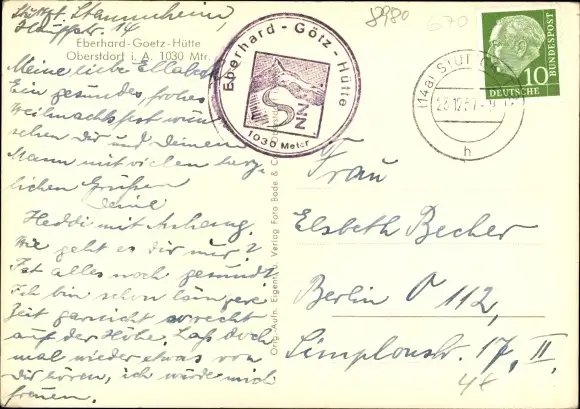 Stuttgt. Stammheim,
Hauptstr. 14
Eberhard-Goetz-Hütte
Oberstdorf i. A. 1030 Mtr.
Meine liebe Elsabeth
Ein gesundes, frohes
Weihnachtsfest wün-
schen Dir und Deinem
Mann mit vielen herz-
lichen Grüßen
Deine
Heddi mit Anhang.
Wie geht es Dir nur?
Ist alles noch gesund?
Ich bin schon längere
Zeit garnicht so recht
auf der Höhe. Laß doch
mal wieder etwas von
Dir hören, ich würde mich
freuen.
Eberhard - Götz - Hütte
S
NN
1030 Meter
Orig.-Aufn. Eigent. u. Verlag Foto Bode &
8980
670
(14a) STUT
23.12.57
h
10
DEUTSCHE
BUNDESPOST
Frau
Elsbeth Becher
Berlin O 112,
Simplonstr. 17, II.
4x